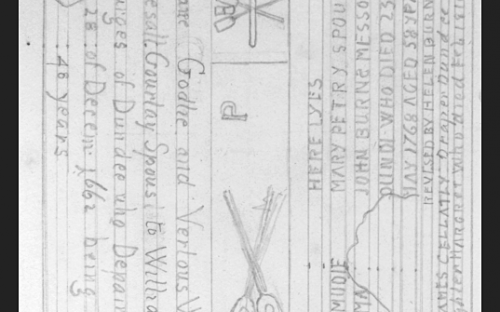 ane Godlie and Verlous W
esall Gourlay Spous to Willia
urges of Dundee who Depair
28 of Decem 1662 being
: 48 years
P
HERE LYES
MARY PETRY SPOU
JOHN BURNE MESSO
DUNDE WHO DIED 23
MAY 1768 AGED 58 YEA
REVISED BY HELEN BURN
AMES CELLATLY Draper Dundee
ghter MARGRET who died Feb